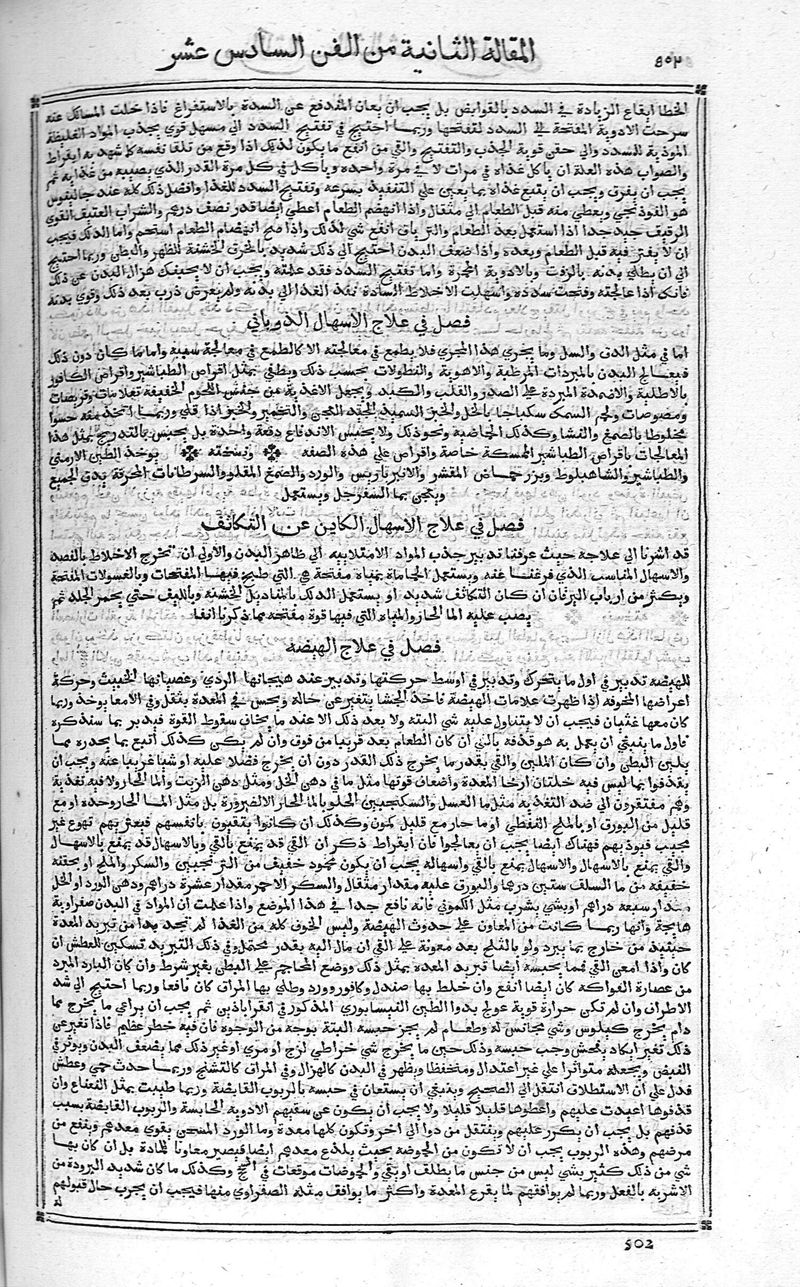 ٥٠٢ المقالة الثانية من الفن السادس عشر
الخطا ايقاع الزيادة في السدد بالقوابض بل يجب ان يعان المندفع عن السدة بالاستفراغ فاذا خلت المسالك عنه
سرحت الادوية المفتحة الى السدد لتفتحها وربما احتيج في تفتيح السدد الى مسهل قوي يجذب المواد الغليظة
الموذية للسدد والى حقن قوية الجذب والتفتيح والقي من انفع ما يكون لذلك اذا وقع من تلقا نفسه كما شهد به ابقراط
والصواب في هذه العلة ان ياكل غذاه في مرات لا في مرة واحدة وياكل في كل مرة القدر الذي يصيبه من غذايه ثم
يجب ان يفرق ويجب ان يتبع غذاه بما يعين على التنفيذ بسرعة وتفتيح السدد للغذا وافضل ذلك كله عند جالينوس
هو الفوذنجي ويعطي منه قبل الطعام الى مثقال واذا انهضم الطعام اعطي ايضا قدر نصف درهم والشراب العتيق القوي
الرقيق جيد جدا اذا استعمل بعد الطعام والترياق انفع شي لذلك واذا صح انهضام الطعام استحم واما الدلك فيجب
ان لا يفتر فيه قبل الطعام وبعده واذا ضعف البدن احتيج الى ذلك شديد بالخرق الخشنة للظهر والبطن وربما احتيج
الى ان يطلي بدنه بالزفت وبالادوية المحمرة واما تفتيح السدد فقد علمته ويجب ان لا يخيفنك هزال البدن عن ذلك
فانك اذا عالجته وفتحت سدده واسهلت الاخلاط السادة نفذ الغذا الى بدنه ولم يعرض ذرب بعد ذلك وقوي بدنه
فصل في علاج الاسهال الذوباني
اما في مثل الدق والسل وما يجري هذا المجري فلا يطمع في معالجته الا كالطمع في معالجة سببه واما ما كان دون ذلك
فيعالج البدن بالمبردات المرطبة والاهوية والنطولات بحسب ذلك ويطفي بمثل اقراص الطباشير واقراص الكافور
بالاطلية والاضمدة المبردة على الصدر والقلب والكبد ويجعل الاغذية من جنس اللحوم الخفيفة هلامات وقريصات
ومصوصات ولحم السمك سكباجا بالخل والخبز السميد الجيد العجن والتخمير والخبز اذا قلي وربما اتخذ منه حسوا
مخلوطا بالصمغ والنشا وكذلك الحماضية ونحو ذلك ولا يحبس الاندفاع دفعة واحدة بل يحبس بالتدريج بمثل هذا
المعالجات باقراص الطباشير الممسكة خاصة واقراص على هذه الصفه ونسخته يوخذ الطين الارمني
والطباشير والشاهبلوط وبزر حماض المقشر والانبرباريس والورد والصمغ المقلو والسرطانات المحرقة يدق الجميع
ويعجن بما السفرجل ويستعمل
فصل في علاج الاسهال الكاين عن التكاثف
قد اشرنا الى علاجة حيث عرفنا تدبير جذب المواد الامتلاييه الى ظاهر البدن والاولى ان تخرج الاخلاط بالفصد
والاسهال المناسب الذي فرغنا عنه ويستعمل الحمامات بمياه مفتحة هي التي طبخ فيها المفتحات وبالغسولات المفتحة
ويكثر من ارياب البزقان ان كان التكاثف شديد او يستعمل الدلك بالمناديل الخشنه وبالليف حتى يحمر الجلد ثم
يصب عليه الما الحار والمياه التي فيها قوة مفتحه مما ذكرنا انفا
فصل في علاج الهيضه
للهيضه تدبير في اول ما يتحرك وتدبير في اوسط حركتها وتدبير عند هيجانها الردي وعصيانها الخبيث وحركة
اعراضها المخوفه اذا ظهرت علامات الهيضة فاخذ الجشا يتغير عن حاله ويحس في المعدة بثقل وفي الامعا بوخز وربما
كان معها غثيان فيجب ان لا يتناول عليه شي البته ولا بعد ذلك الا عند ما يخاف سقوط القوة فيدبر بما سنذكره
فاول ما ينبغي ان يعمل به هو قذفه بالقي ان كان الطعام بعد قريبا من فوق وان لم يكن كذلك اتبع بما يحدره مما
يلين البطن وان كان الملين والقي بقدر ما يخرج ذلك القدر دون ان يخرج فضلا عليه او شيا غريبا عنه ويجب ان
يقذفوا بما ليس فيه خلتان ارخا المعدة واضعاف قوتها مثل ما في دهن الخل ومثل دهن الزيت والما الحار ولا فيه تغذية
وهم مفتقرون الى ضد التغذيه مثل ما العسل والسكنجبين الحلو بالما الحار الا لضرورة بل مثل الما الحار وحده او مع
قليل من البورق او بالملح النفطي او ما حار مع قليل كمون وكذلك ان كانوا يتقيون بانفسهم فيعتريهم تهوع غير
مجيب فيوذيهم فهناك ايضا يجب ان يعالجوا فان ابقراط ذكر ان القي قد يمنع بالقي وبالاسهال قد يمنع بالاسهال
والقي يمنع بالاسهال والاسهال يمنع بالقي واسهاله يجب ان يكون بمحمود خفيف من الترنجبين والسكر والملح او بحقنه
خفيفه من ما السلق ستين درهما والبورق عليه مقدار مثقال والسكر الاحمر مقدار عشرة دراهم ودهن الورد او الخل
مقدار سبعه دراهم او بشي يشرب مثل الكموني فانه نافع جدا في هذا الموضع واذا علمت ان المواد في البدن صفراوية
هايجة وانها ربما كانت من المعاون على حدوث الهيضة وليس الخوف كله من الغذا لم تجد بدا من تبريد المعدة
حينيذ من خارج بما يبرد ولو بالثلج بعد معونة على القي ان مال اليه بقدر محتمل وفي ذلك التبريد تسكين للعطش ان
كان واذا امعن القي فمما يحبسه ايضا تبريد المعده بمثل ذلك ووضع المحاجم على البطن بغير شرط وان كان البارد المبرد
من عصارة الفواكه كان ايضا انفع وان خلط بها صندل وكافور وورد وطلي بها المراق كان نافعا وربما احتيج الى شد
الاطراف وان لم تكن حرارة قوية عولج بدوا الطين النيسابوري المذكور في انقراباذين ثم يجب ان يراعي ما يخرج فما
دام يخرج كيلوس وشي مجانس له وطعام لم يجز حبسه البتة بوجه من الوجوه فان فيه خطر عظيم فاذا تغير عن
ذلك تغير ايكاد يفحش وجب حبسه وذلك حين ما يخرج شي خراطي لزج او مري او غير ذلك مما يضعف البدن ويوثر في
النبض ويجعله متواترا على غير اعتدال ومنخفظا ويظهر في البدن كالهزال وفي المراق كالتشنج وربما حدث حمي وعطش
فدل على ان الاستطلاق انتقل الى الصحيح وينبغي ان يستعان في حبسه بالربوب القابضة وربما طيبت بمثل النعناع وان
قذفوها اعيدت عليهم واعطوها قليلا قليلا ولا يجب ان يكون عن سقيهم الادوية الحابسة والربوب القابضة بسبب
قذفهم بل يجب ان يكرر عليهم وينتقل من دوا الى اخر وتكون كلها معدة وما الورد المسخن يقوي معدهم وينفع من
مرضهم وهذه الربوب يجب ان لا تكون من الحموضه بحيث يلذع معدهم ايضا فيصير معاونا للمادة بل ان كان بها
شي من ذلك كسر بشي ليس من جنس ما يطلق او يقي والحموضات موقعات في السحج وكذلك ما كان شديد البرودة من
الاشربه بالفعل وربما لم يوافقهم لما يقرع المعدة واكثر ما يوافق مثله الصفراوي منها فيجب ان يجرب حال قبولهم
502